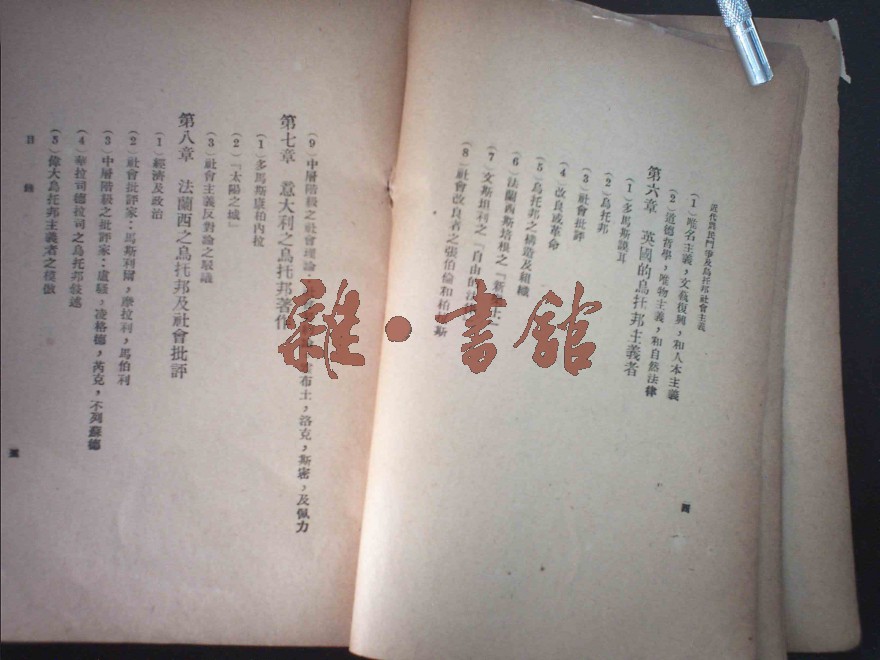 近代農民鬥爭及烏托邦社會主義
(1)唯名主義，文藝復興，和人本主義
(2)道德哲學，唯物主義，和自然法律
第六章 英國的烏托邦主義者
(1)多馬斯謨耳
(2)烏托邦
(3)社會批評
(4)改良或革命
(5)烏托邦之構造及組織
(6)法蘭西斯培根之「新
(7)文斯坦利之「自由的法
(8)社會改良者之張伯倫和柏 斯
四
(9)中層階級之社會理論 布士，洛克，斯密，及佩力
第七章 意大利之烏托邦著作
(1)多馬斯康柏內拉
(2)「太陽之城」
(3)社會主義反對論之駁議
第八章 法蘭西之烏托邦及社會批評
(1)經濟及政治
(2)社會批評家：馬斯利爾，摩拉利，馬伯利
(3)中層階級之批評家：盧騷，凌格德，芮克，不列蘇德
(4)華拉司德拉司之烏托邦敍述
(5)偉大烏托邦主義者之模倣
目錄
五
雜·書館